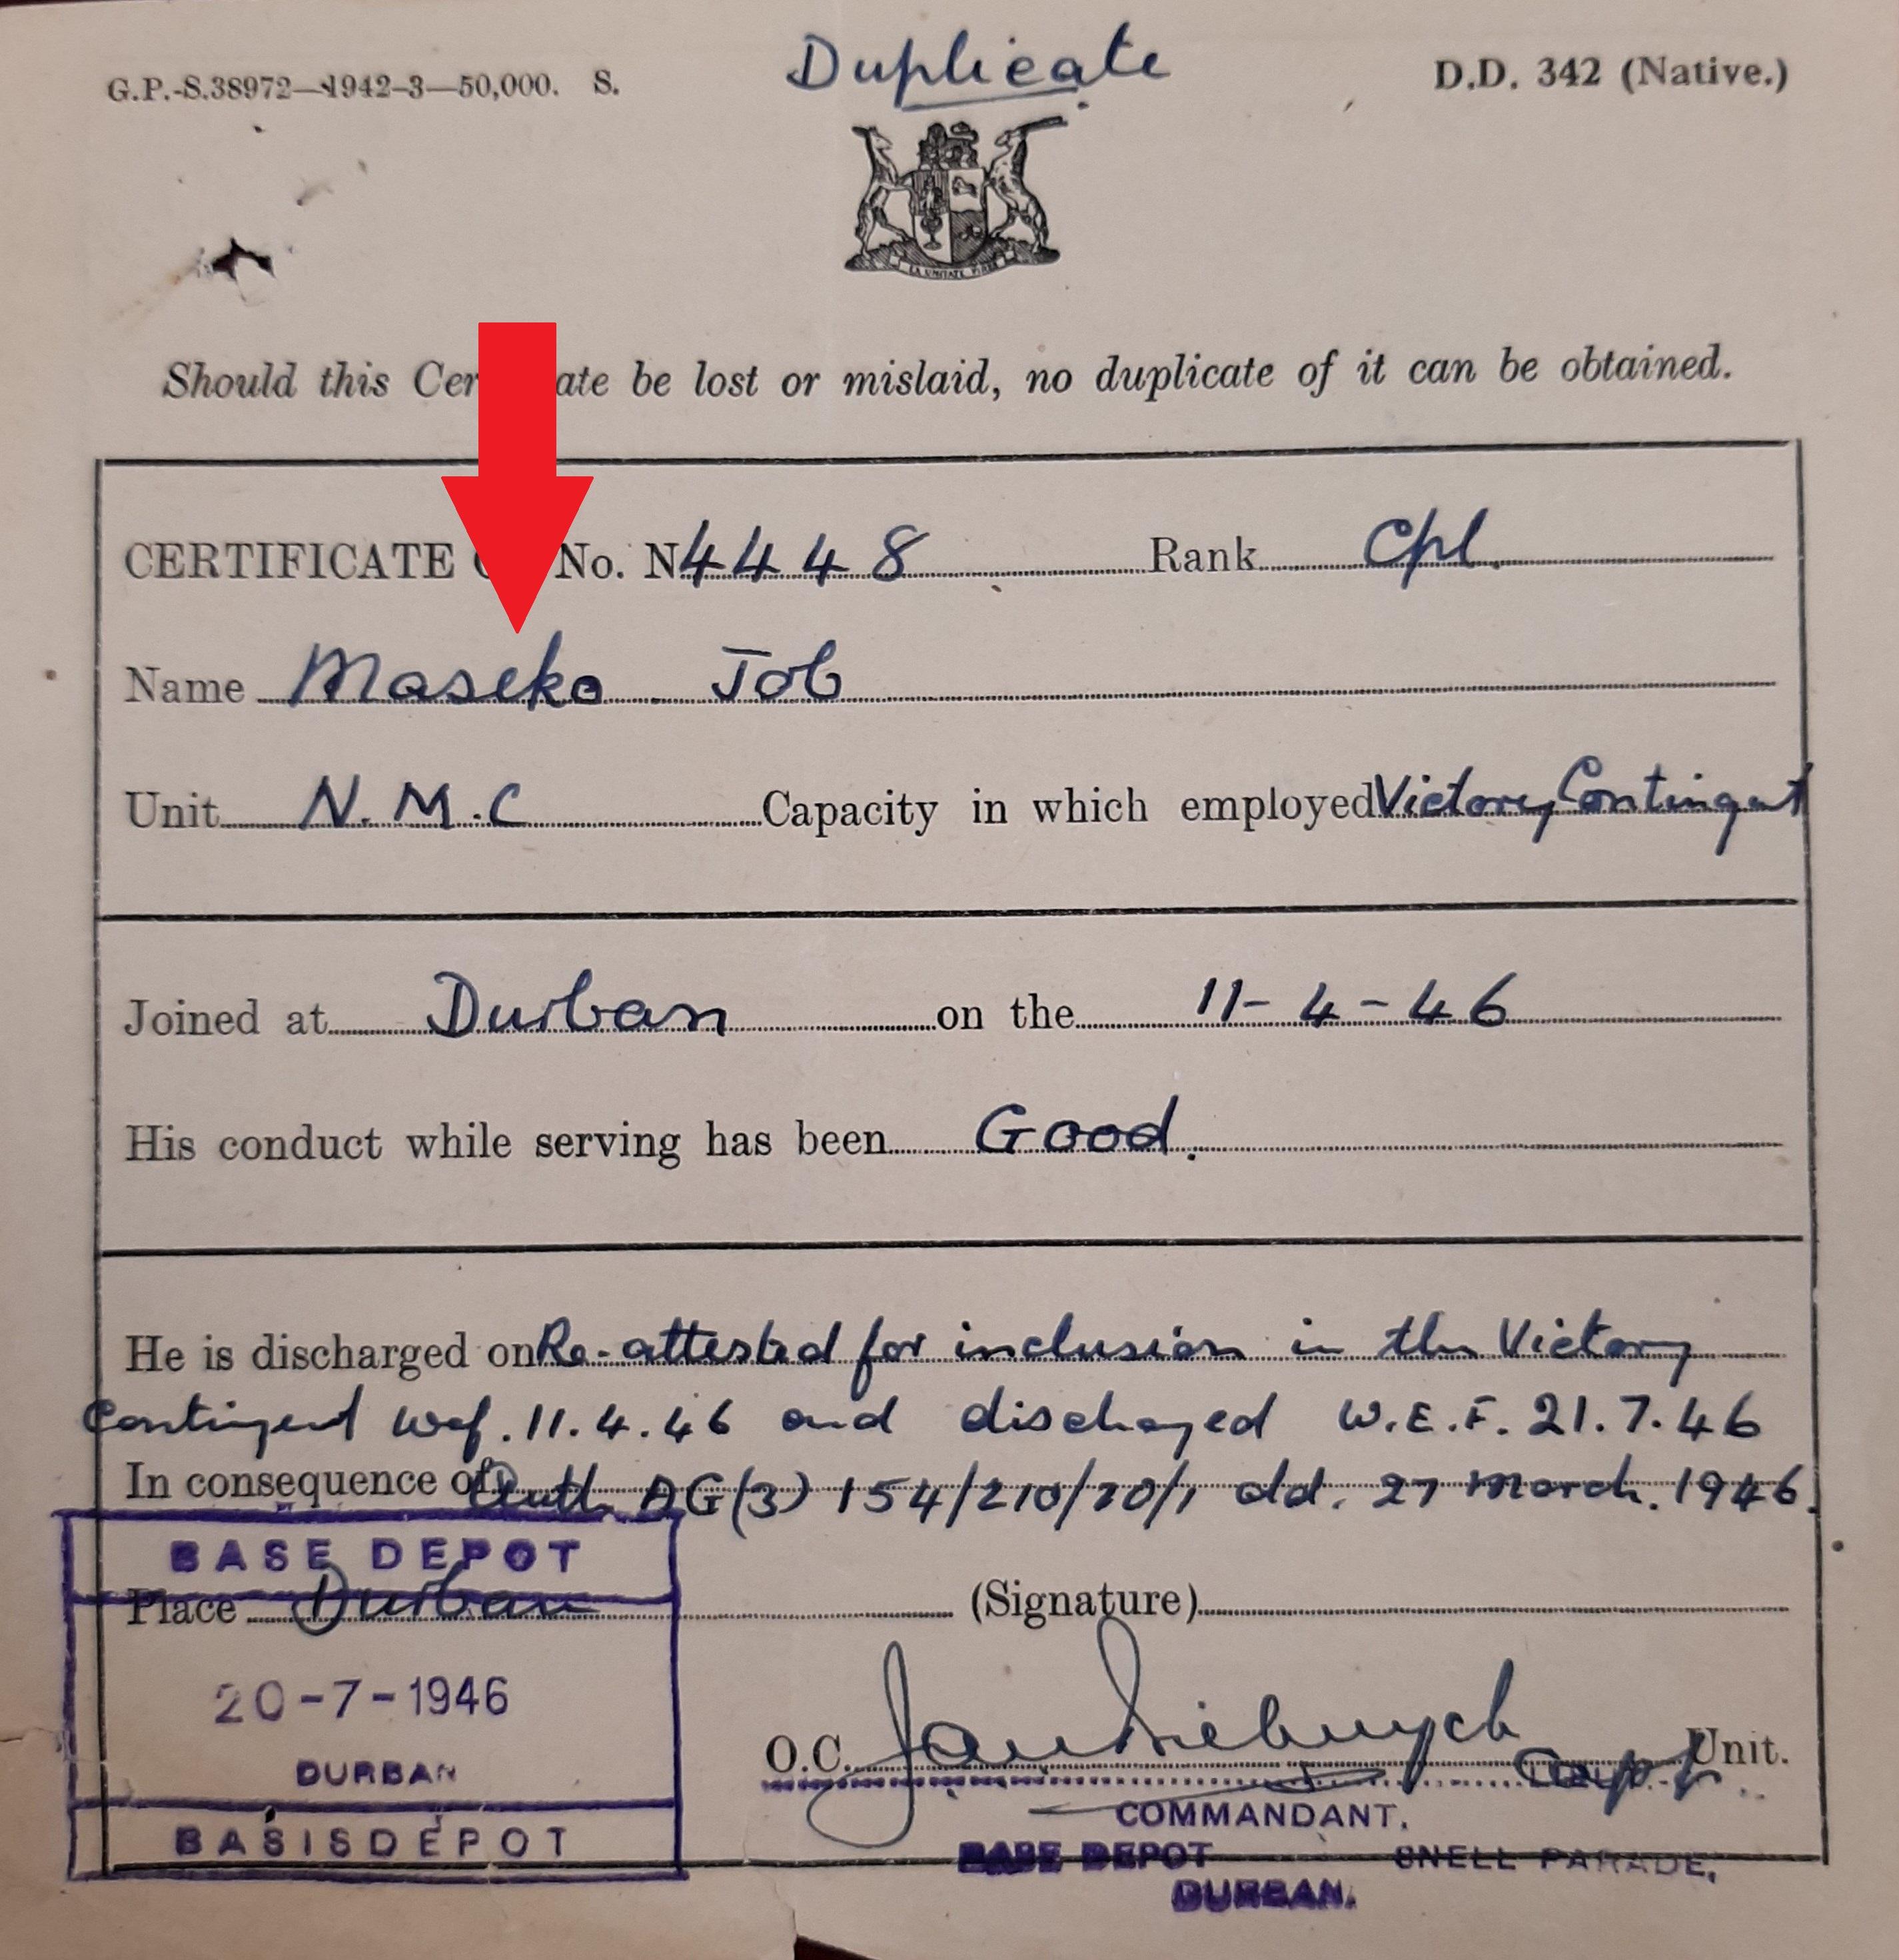 Duplicate
G.P.-S.38972—1942-3—50,000. S.
D.D. 342 (Native.)
Should this Cer ate be lost or mislaid, no duplicate of it can be obtained.
CERTIFICATE No. N4448 Rank Cpl.
Name Maseko Job
Unit N.M.C Capacity in which employed Victory Contingent
Joined at Durban on the 11-4-46
His conduct while serving has been Good.
He is discharged on Re-attested for inclusion in the Victory
Contingent wef. 11.4.46 and discharged W.E.F. 21.7.46
In consequence of Auth AG(3) 154/210/20/1 dd. 27 March. 1946.
BASE DEPOT
Place Durban (Signature)
20-7-1946
DURBAN
O.C. Capt Unit.
COMMANDANT.
BASISDEPOT
BASE DEPOT SNELL PARADE,
DURBAN.